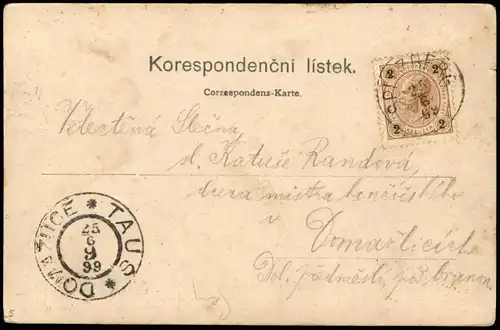 Korespondenční lístek.
Correspondenz-Karte.
2 2
2 2
Velectěná Slečna,
sl. Katuše Randová,
dcera mistra
v
Domažlicích
Dol. předměstí, pod
DOMAŽLICE * TAUS *
25
6
9
99